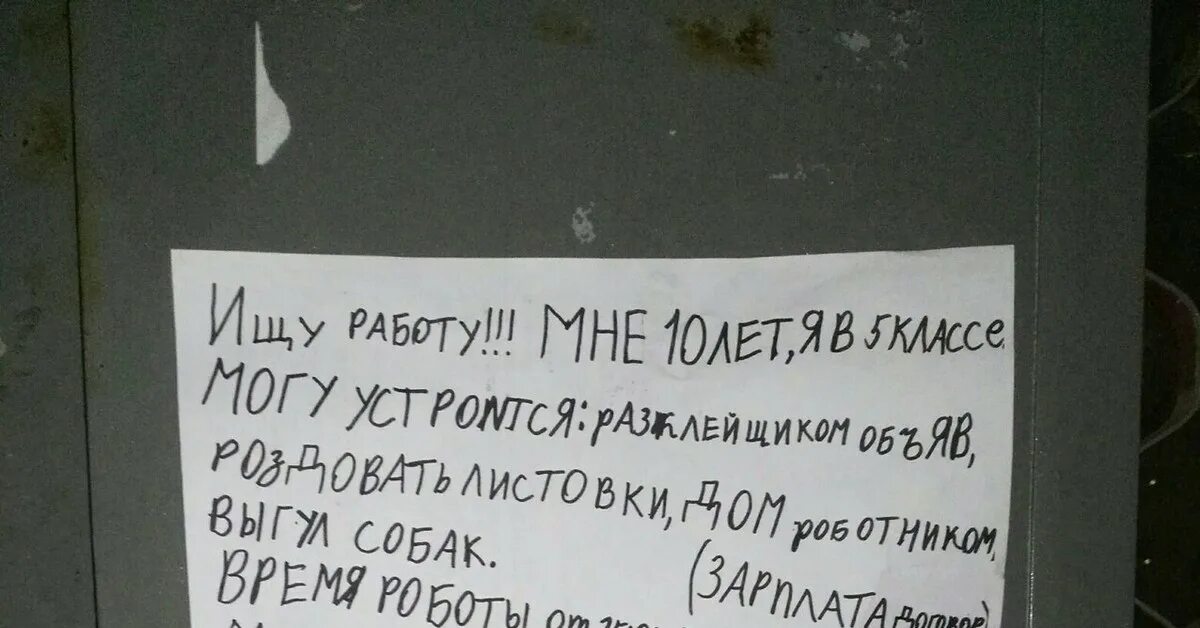 Ищу работу!!! Мне 10 лет, я в 5 классе
могу устроится: разклейщиком объяв,
роздовать листовки, дом роботником,
выгул собак.
(зарплата договор)
Время роботы от